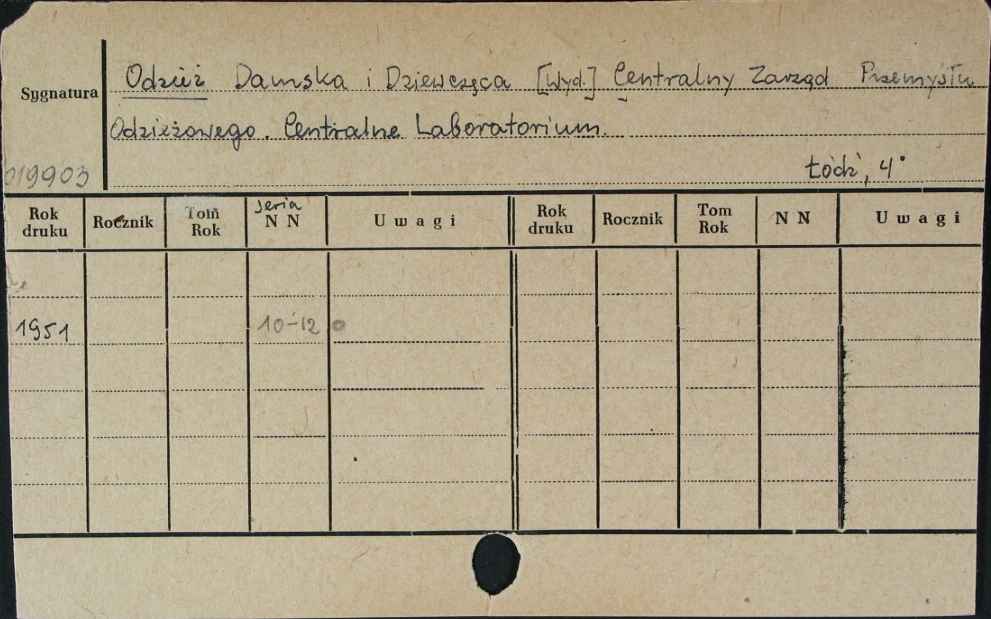 Odzież Damska i Dziewczęca [Wyd.] Centralny Zarząd Przemysłu
Sygnatura
Odzieżowego. Centralne Laboratorium.
019903
Łódź, 4°
Rok druku Rocznik Tom Rok seria N N Uwagi Rok druku Rocznik Tom Rok N N Uwagi
1951 10-12